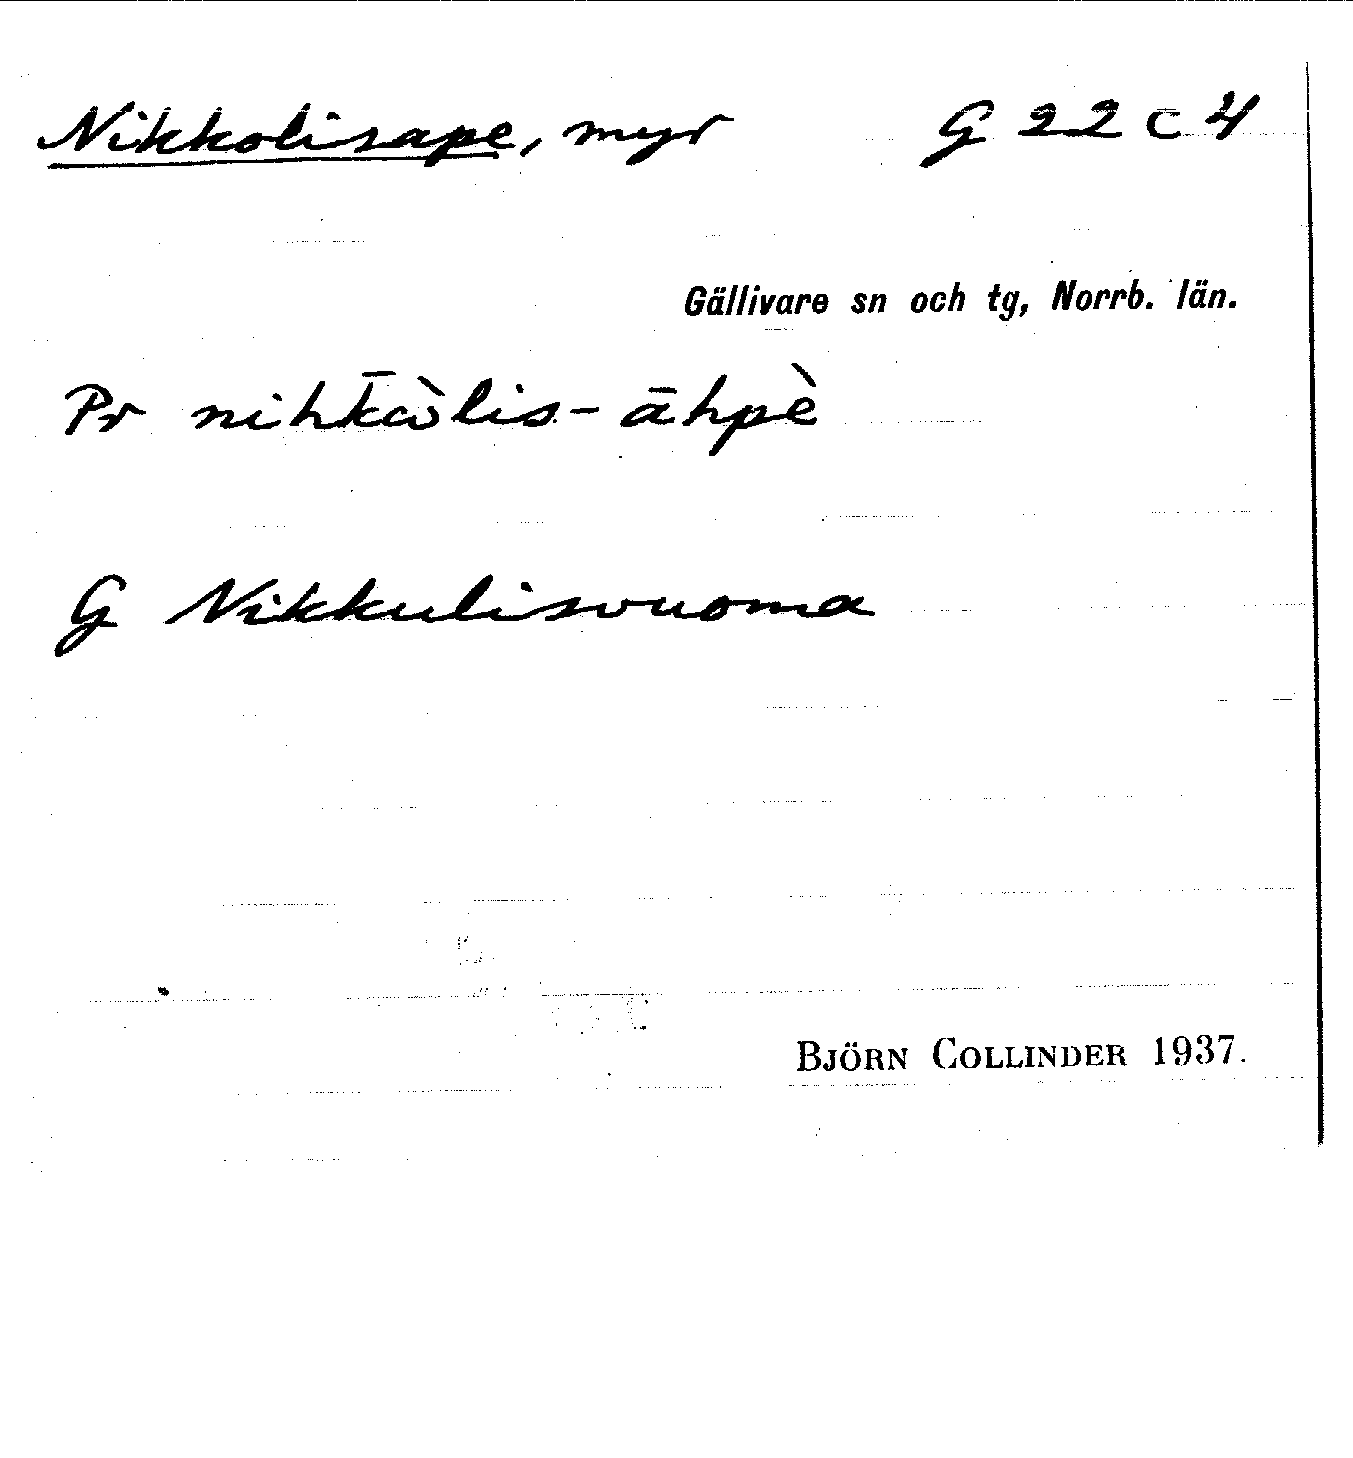 Nikkolisape, myr G 22 C 4
Gällivare sn och tg, Norrb. län.
Pr nihk̄ɑ̀lis-āhpè
G Nikkulisvuoma
BJÖRN COLLINDER 1937.